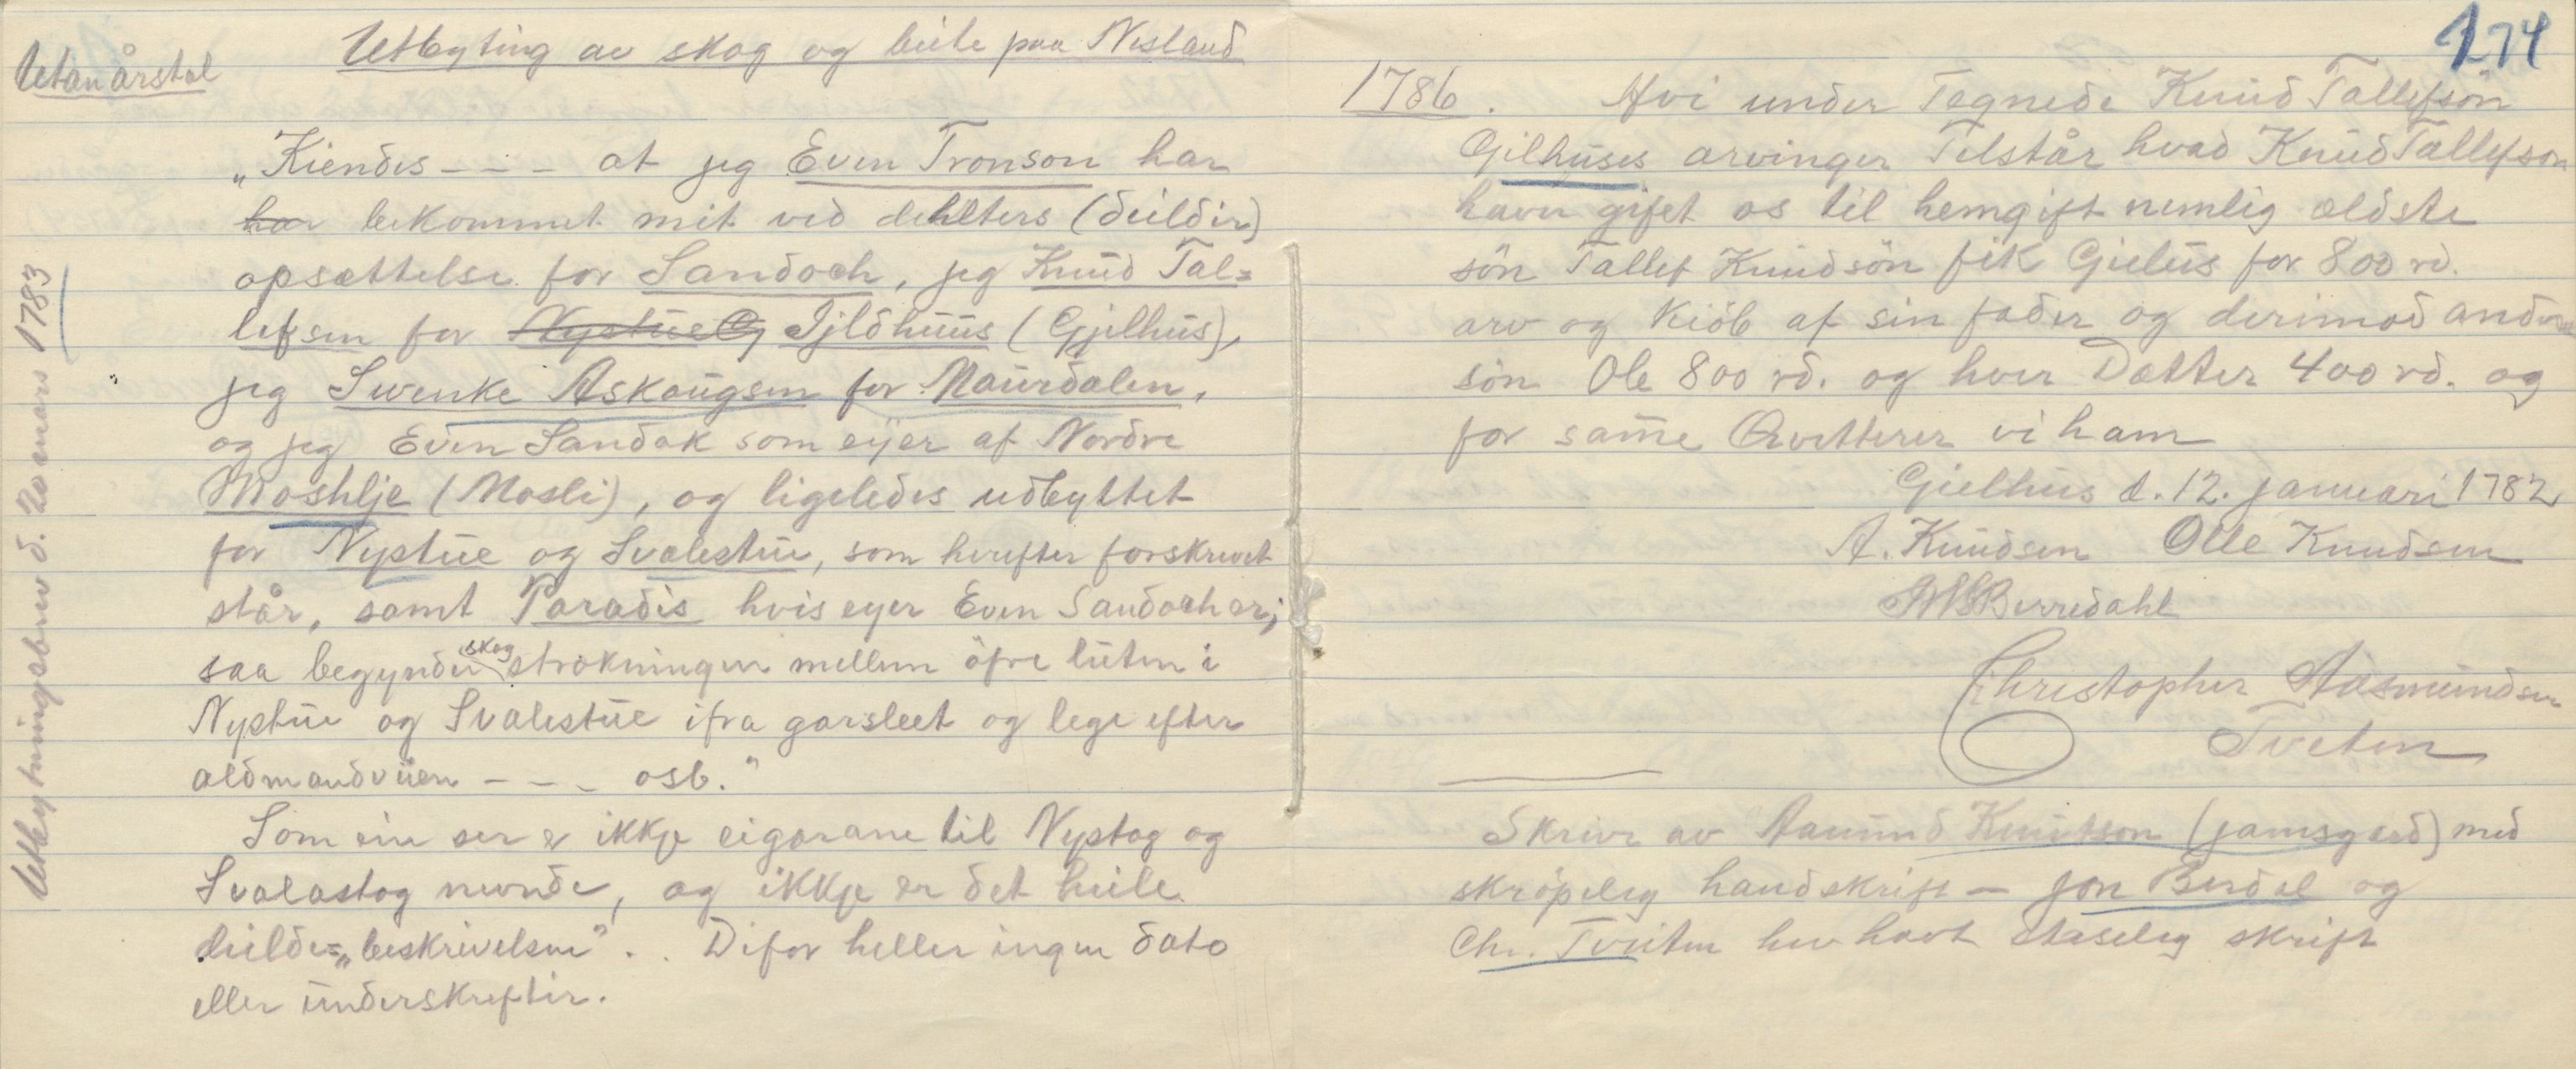 Utbyting av skog og beite paa Nesland
Utan årstal
„Kiendes - - - at jeg Even Tronson har
har bekommet mit ved dehlters (deildir)
opsættelse for Sandoch, jeg Knud Tal=
lefsen for Nystue Og Ijldhuus (Gjelhus),
jeg Swenke Askougsen for Maurdalen,
og jeg Even Sandok som eijer af Nordre
Moshlje (Mosli), og ligeledes udbyttet
for Nystue og Svalestue, som herefter forskrevet
står, samt Paradis hvis eyer Even Sandoch er;
saa begynder skog strækningen mellem öfre luten i
Nystue og Svalestue ifra garsleet og lege efter
aldmandviien - - - osb."
Som ein ser er ikkje eigarane til Nystog og
Svalastog nevnde, og ikkje er det heile
deilde=„beskrivelsen". . Difor heller ingen dato
eller underskrefter.
Utbytningsbrev d. 20 mars 1783
174
1786. Hvi under Tegnede Knud Tallefsön
Gilhuses arvinger Tilstår hvad Knud Tallefson
haver gifet os til hemgift nemlig ældste
sön Tallef Knudsön fik Gielus for 800 rd.
arv og Kiöb af sin fader og derimod anden
sön Ole 800 rd. og hver Datter 400 rd. og
for same Qvitterer vi ham
Gielhus d. 12. januari 1782
A. Knudsen Olle Knudsen
Berredahl
Christopher Aasmundsen
Tveten
Skrive av Aamund Knutson (jamsgard) med
skröpeleg handskrift — Jon Berdal og
Chr. Tveiten hev havt staseleg skrift